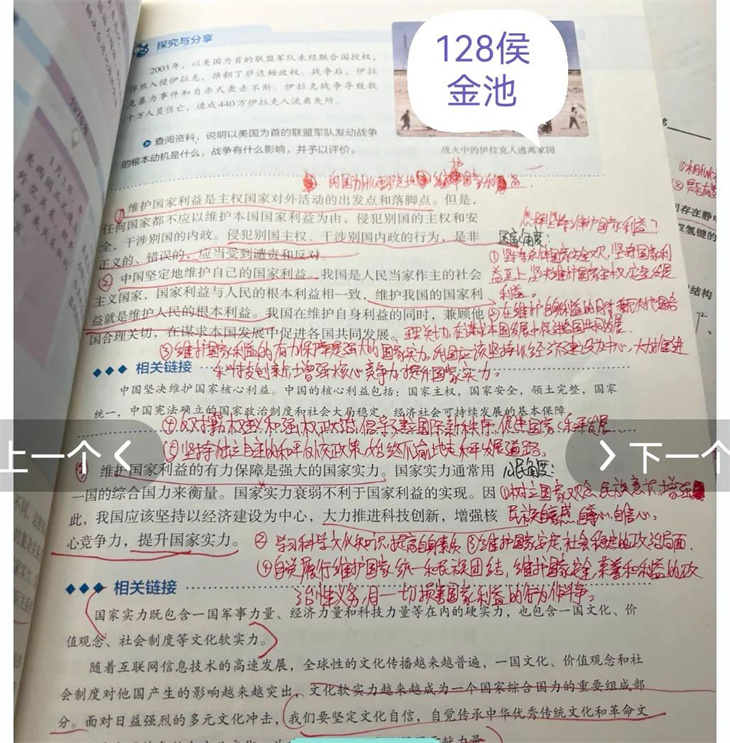 探究与分享
128侯
金池
2003年,以美国为首的联盟军队未经联合国授权,
入侵伊拉克,推翻了萨达姆政权。战争后,伊拉
克暴力事件和自杀式袭击不断。伊拉克战争导致数
十万人员伤亡,造成440万伊拉克人流离失所。
查阅资料,说明以美国为首的联盟军队发动战争
的根本动机是什么,战争有什么影响,并予以评价。
战火中的伊拉克人逃离家园
维护国家利益是主权国家对外活动的出发点和落脚点。但是,
任何国家都不应以维护本国国家利益为由,侵犯别国的主权和安
全,干涉别国的内政。侵犯别国主权、干涉别国内政的行为,是非
正义的、错误的,应当受到谴责和反对。
怎样维护国家利益?
国家角度:
② 中国坚定地维护自己的国家利益。我国是人民当家作主的社会
主义国家,国家利益与人民的根本利益相一致,维护我国的国家利
益就是维护人民的根本利益。我国在维护自身利益的同时,兼顾他
国合理关切,在谋求本国发展中促进各国共同发展。
③维护国家利益的有力保障是强大的国家实力,我国应该坚持以经济建设为中心,大力推进
科技创新,增强核心竞争力,提升国家实力。
相关链接
中国坚决维护国家核心利益。中国的核心利益包括:国家主权,国家安全,领土完整,国家
统一,中国宪法确立的国家政治制度和社会大局稳定,经济社会可持续发展的基本保障。
④反对霸权主义和强权政治,
⑤坚持独立自主的和平外交政策,始终不渝地走和平发展道路。
上一个
下一个
维护国家利益的有力保障是强大的国家实力。国家实力通常用
一国的综合国力来衡量。国家实力衰弱不利于国家利益的实现。因
此,我国应该坚持以经济建设为中心,大力推进科技创新,增强核
心竞争力,提升国家实力。
公民角度:
①树立国家观念,民族意识,增强
民族自尊心、自信心。
② 学习科学文化知识,提高自身素质 ③维护国家安定、社会稳定的政治局面.
④自觉履行维护国家统一和民族团结,维护国家安全、荣誉和利益的政
治性义务,同一切损害国家利益的行为作斗争。
相关链接
国家实力既包含一国军事力量、经济力量和科技力量等在内的硬实力,也包含一国文化、价
值观念、社会制度等文化软实力。
随着互联网信息技术的高速发展,全球性的文化传播越来越普遍,一国文化、价值观念和社
会制度对他国产生的影响越来越突出,文化软实力越来越成为一个国家综合国力的重要组成部
分。面对日益强烈的多元文化冲击,我们要坚定文化自信,自觉传承中华优秀传统文化和革命文